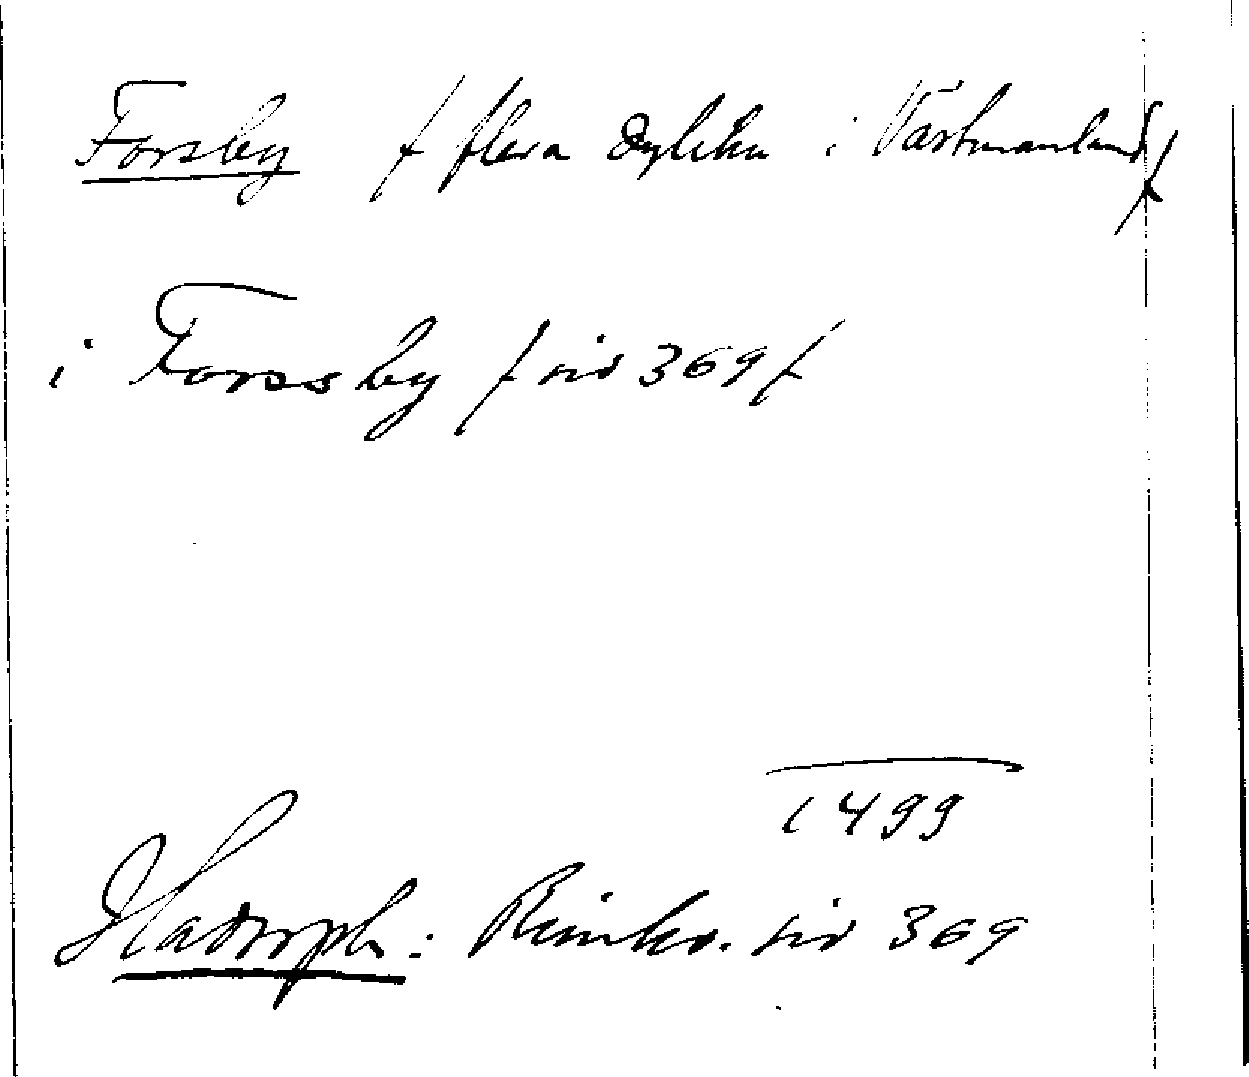 Forsby / flera dylika i Västmanland /
i Forssby / sid 369 /
1499
Hadorph: Rimkr. sid 369